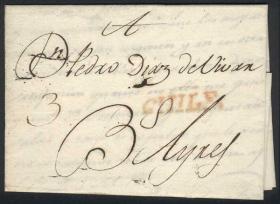 A
Dn Pedro Diaz de Vivar
3 CHILE
Bs Ayres